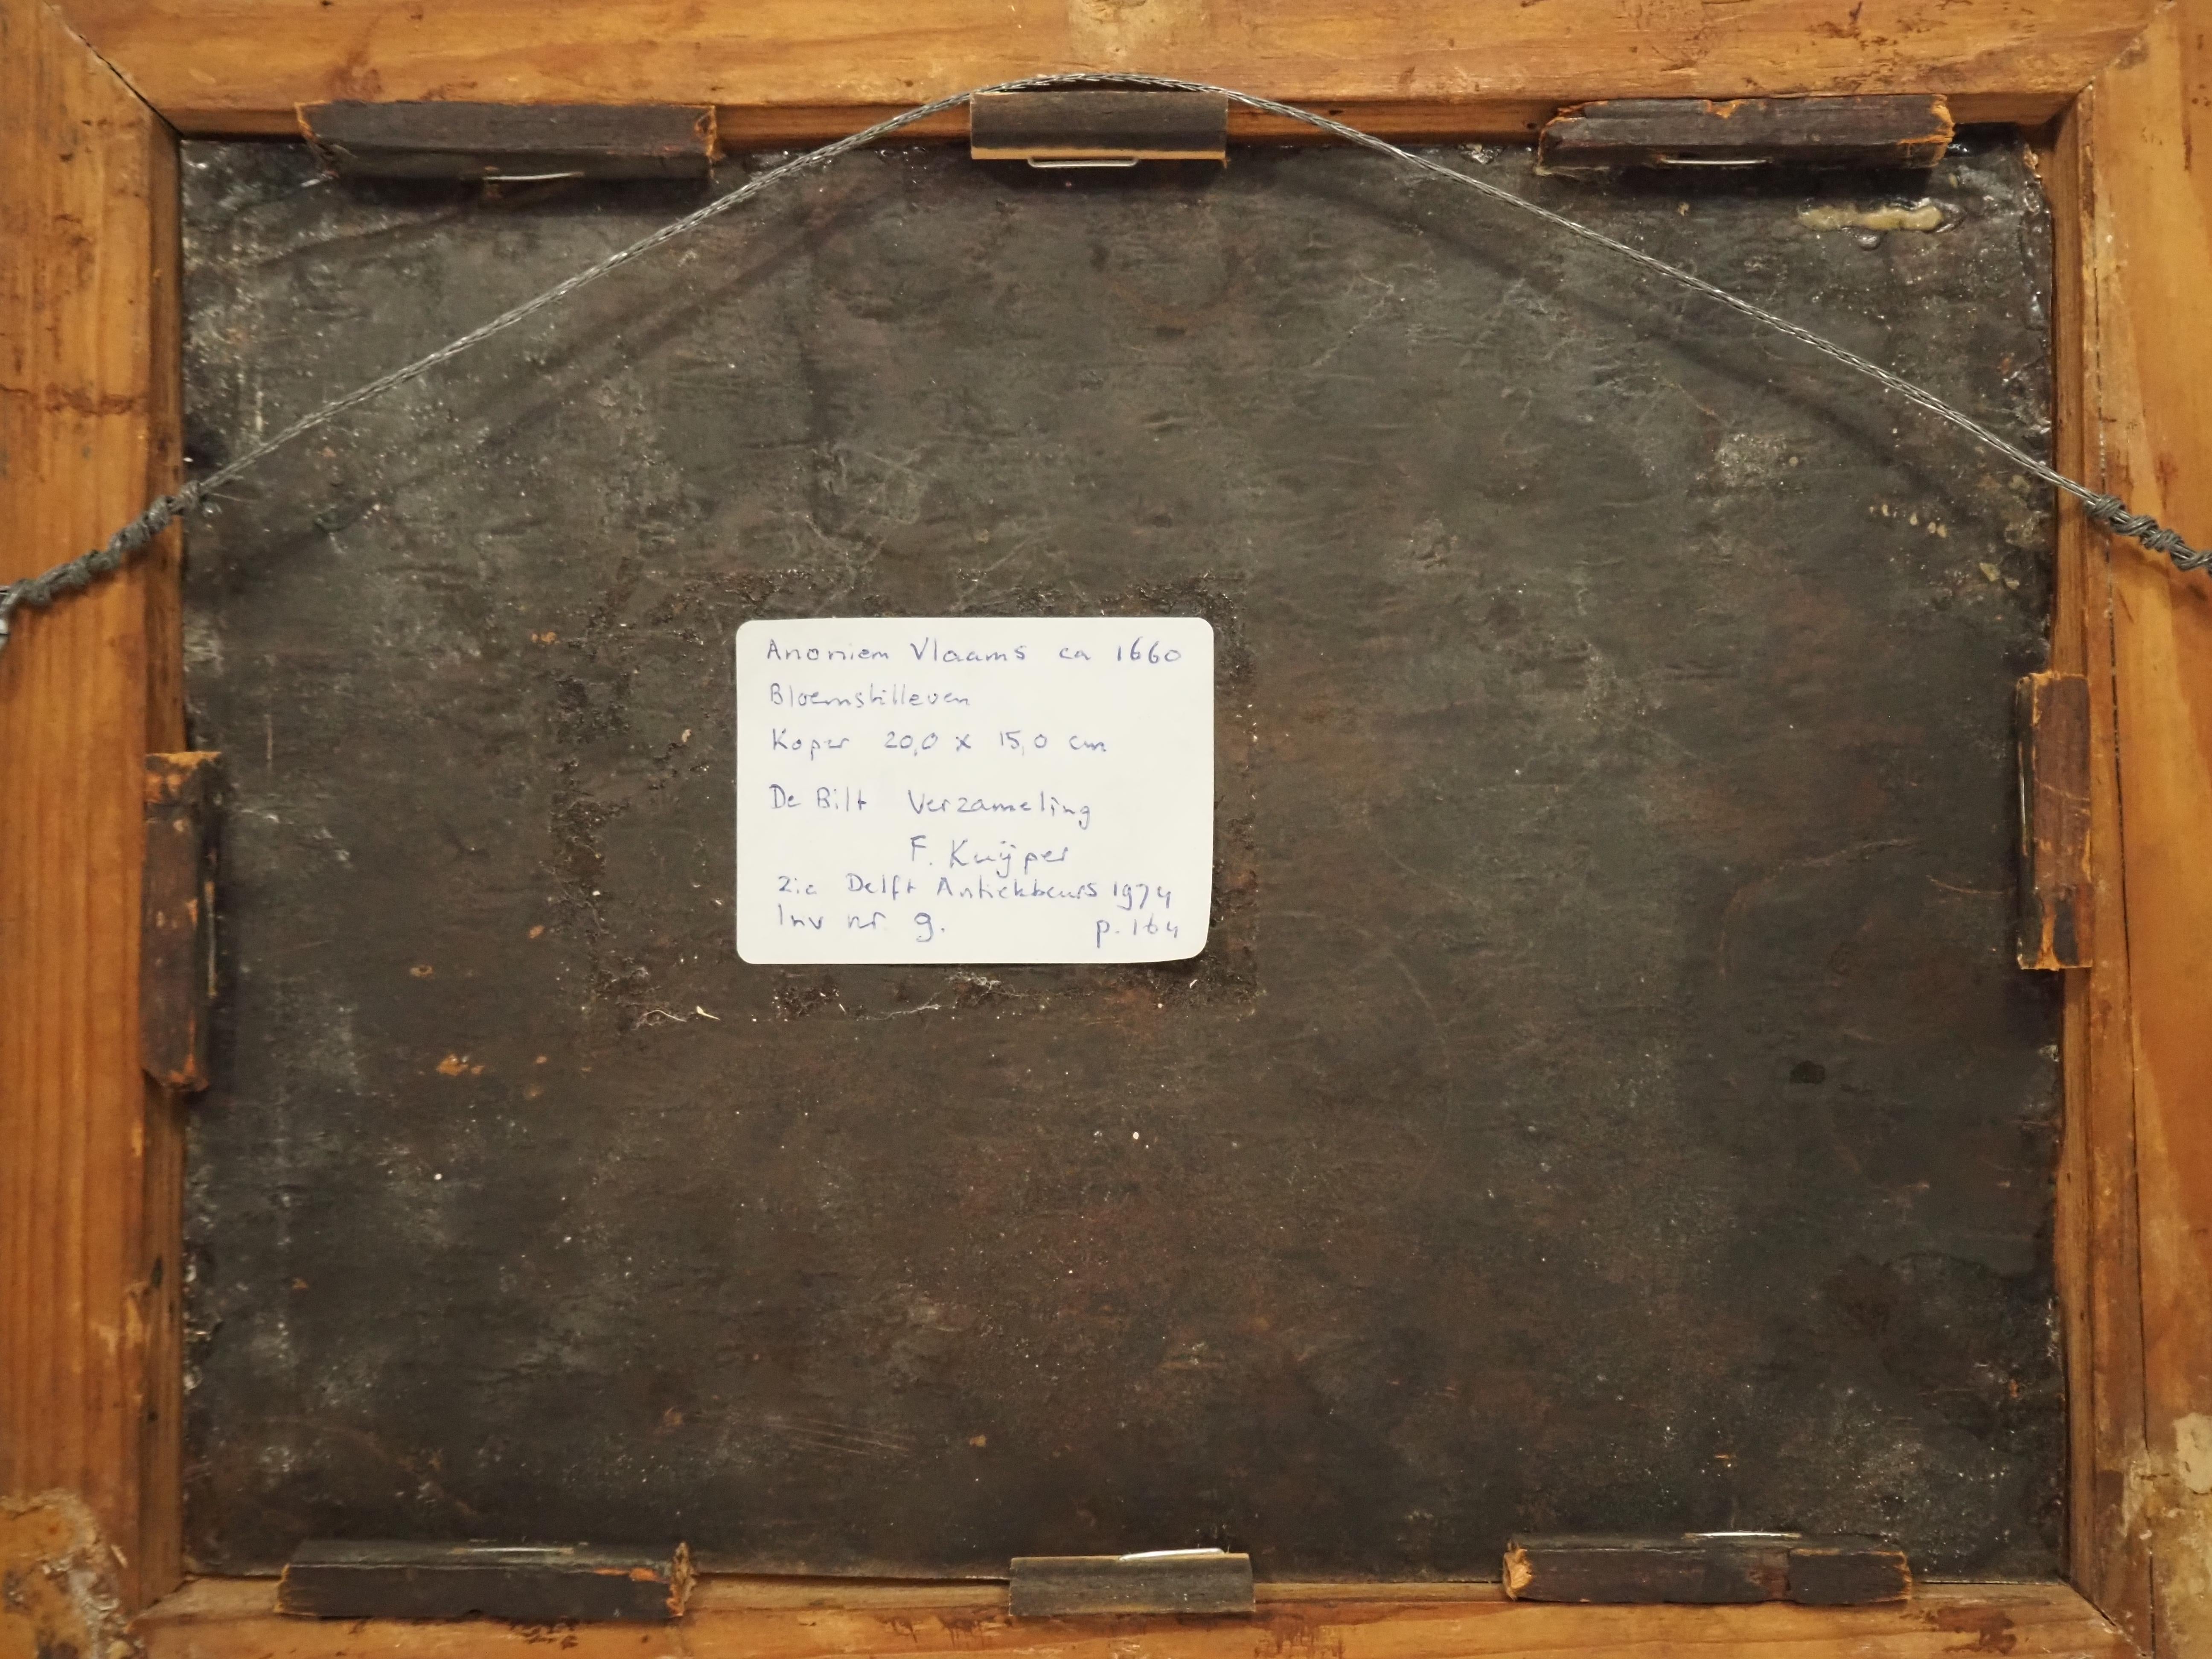 Anoniem Vlaams ca 1660
Bloemstilleven
Koper 20,0 x 15,0 cm
De Bilt Verzameling
F. Kuÿper
zie Delft Antiekbeurs 1974
Inv nr. 9. p. 164